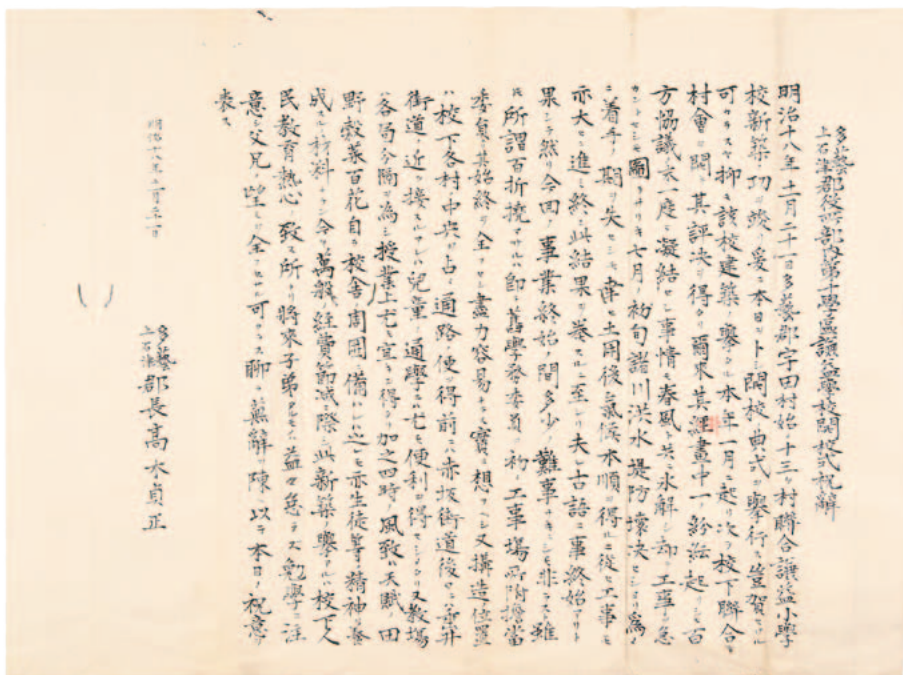 多藝
上石津郡役所部内第十學區謙益學校開校式祝辭
明治十八年十二月二十一日多藝郡宇田村始メ十三ヶ村聯合謙益小學
校新築ノ功ヲ竣リ爰ニ本日ヲトシ開校ノ典式ヲ擧行ス豈賀セサル
可ケンヤ抑モ該校建築ノ擧タル本年一月ニ起リ次テ校下聯合
村會ヲ開キ其評決ヲ得タリ爾來其經畫中一ノ紛紜ヲ起シ百
方協議亦一度ニ凝結セシ事情モ春風ト共ニ氷解シ却テ工事ヲ急
カントセシモ圖ラサリキ七月ノ初旬諸川洪水堤防壞決セシヨリ爲メ
ニ着手ノ期ヲ失セシモ幸ニ土用後氣候本順ヲ得ルニ從ヒ工事モ
亦大ニ進ミ終ニ此結果ヲ奏スルニ至レリ夫レ古語ニ事終始アリト
果シテ然リ今回ノ事業終始ノ間多少ノ難事ナキニシモ非ラス雖
𪜈所謂百折撓マサルハ即チ舊學務委員ノ初メ工事場所擔當
委員ノ其始終ヲ全フセシ盡力容易ナラサル實ニ想フヘシ又搆造位置
ハ校下各村ノ中央ヲ占メ通路ノ便ヲ得前ニハ赤坂街道後ニハ垂井
街道ノ近キニ接スルアレハ兒童ノ通學ニハ尤モ便利ヲ得セシメタリ又教場
ハ各局分隔ヲ為シ授業上尤モ宜シキヲ得タリ加之四時ノ風致ハ天賦ノ田
野穀菜百花自ラ校舎ノ周囲ニ備ハレリ之レモ亦生徒等精神ヲ發
成スルノ材料タラン今ヤ萬般ノ経費節減ノ際ニ此新築ノ擧アルハ校下人
民教育熱心ノ致ス所ナリ將來子弟タルモノハ益々怠ラス勉學ニ注
意シ父兄ノ望ミヲ全フセサル可ケンヤ聊カ蕪辭ヲ陳シ以テ本日ノ祝意ヲ
表ス
明治十八年十二月二十一日
多藝
上石津郡長高木貞正